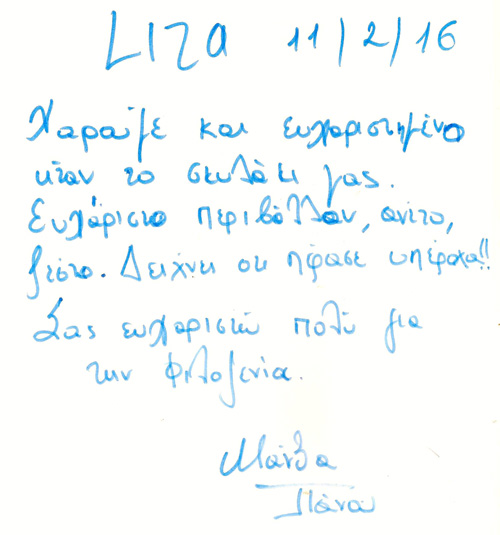 LIZA 11/2/16
Χαρούμε και ευχαριστημένο
ήταν το σκυλάκι μας.
Ευχάριστο περιβάλλον, άνετο,
ζεστό. Δείχνει ότι πέρασε υπέροχα!!
Σας ευχαριστώ πολύ για
την φιλοξενία.
Μάνια